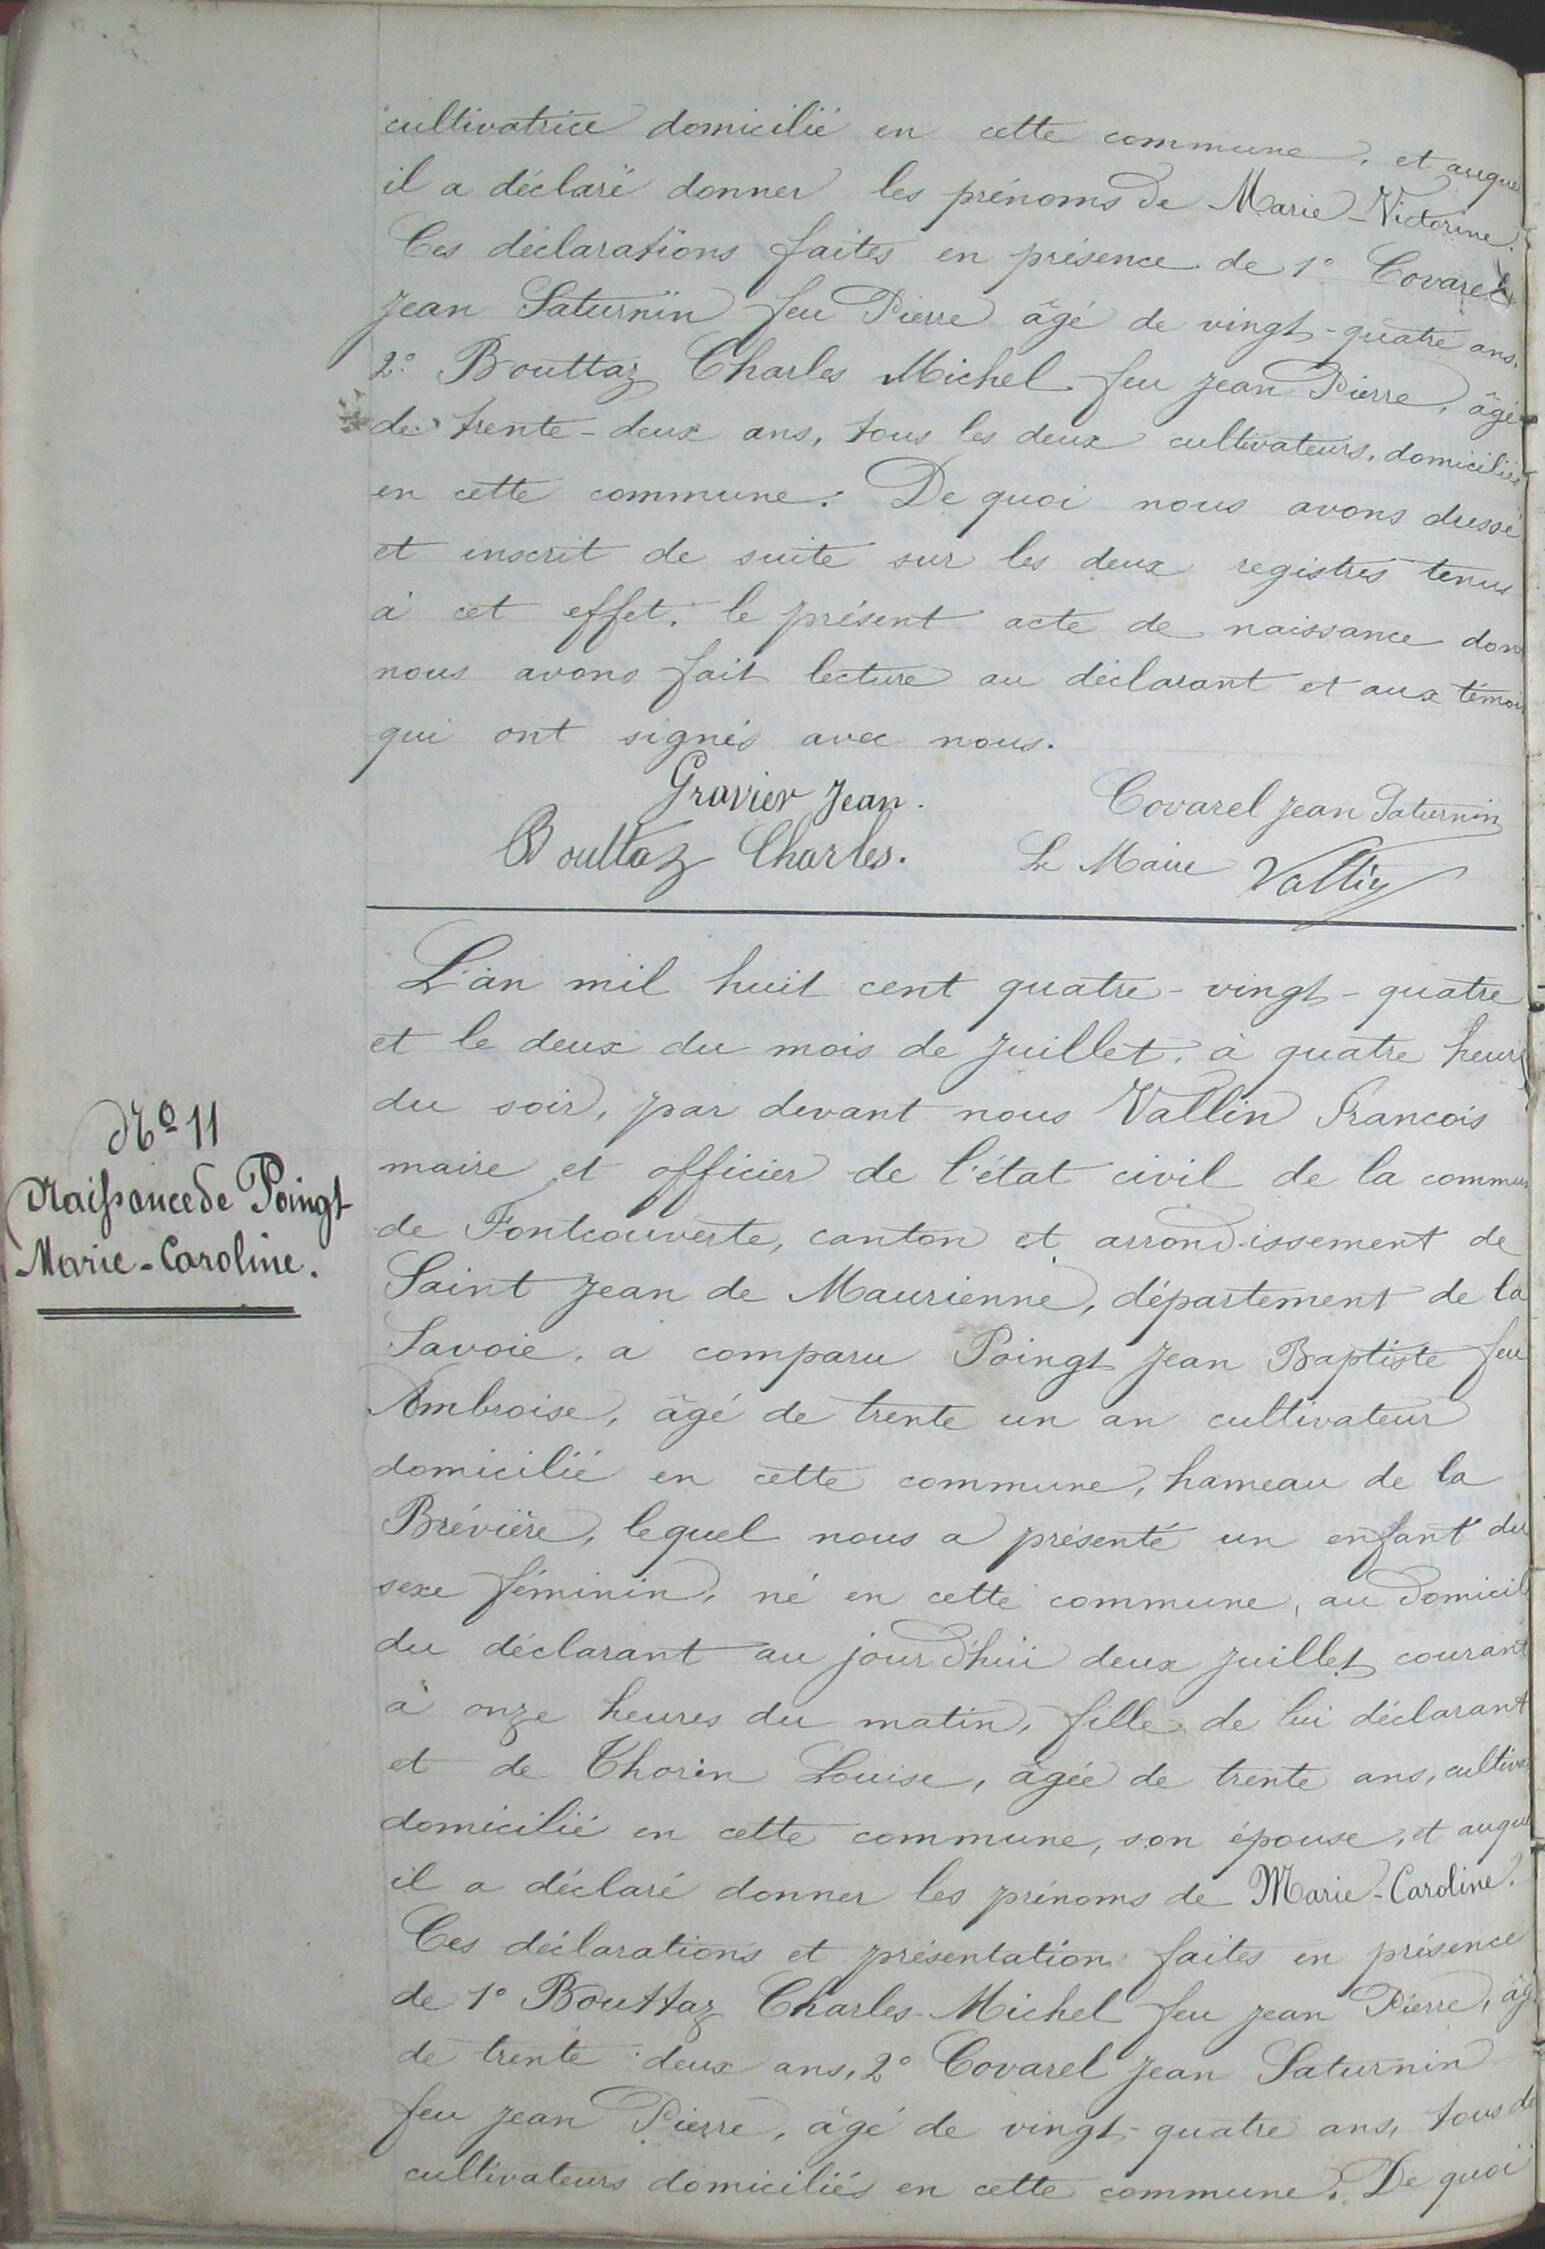 cultivatrice domicilié en cette commune, et auque
il a déclaré donner les prénoms de Marie-Victorine.
Ces déclarations faites en présence de 1° Covarel
Jean Saturnin feu Pierre âgé de vingt-quatre ans,
2° Bouttaz Charles Michel feu Jean Pierre, âgé
de trente-deux ans, tous les deux cultivateurs, domiciliés
en cette commune. De quoi nous avons dressé
et inscrit de suite sur les deux registres tenus
à cet effet, le présent acte de naissance don
nous avons fait lecture au déclarant et aux témoi
qui ont signés avec nous.
Gravier Jean. Covarel Jean Saturnin
Bouttaz Charles. Le Maire Vallin
L'an mil huit cent quatre-vingt-quatre
et le deux du mois de Juillet, à quatre heures
du soir, par devant nous Vallin Francois
maire et officier de l'état civil de la commun
de Fontcouverte, canton et arrondissement de
Saint Jean de Maurienne, département de la
Savoie, a comparu Poingt Jean Baptiste feu
Ambroise, âgé de trente un an cultivateur
domicilié en cette commune, hameau de la
Brévière, lequel nous a présenté un enfant du
sexe féminin, né en cette commune, au domicil
du déclarant au jourd'hui deux juillet courant
à onze heures du matin, fille de lui déclarant
et de Thorin Louise, âgée de trente ans, cultiva
domicilié en cette commune, son épouse, et auque
il a déclaré donner les prénoms de Marie-Caroline.
Ces déclarations et présentation faites en présence
de 1° Bouttaz Charles-Michel feu Jean Pierre, âg
de trente deux ans, 2° Covarel Jean Saturnin
feu Jean Pierre, âgé de vingt-quatre ans, tous de
cultivateurs domiciliés en cette commune. De quoi
N° 11
Naissance de Poingt
Marie-Caroline.